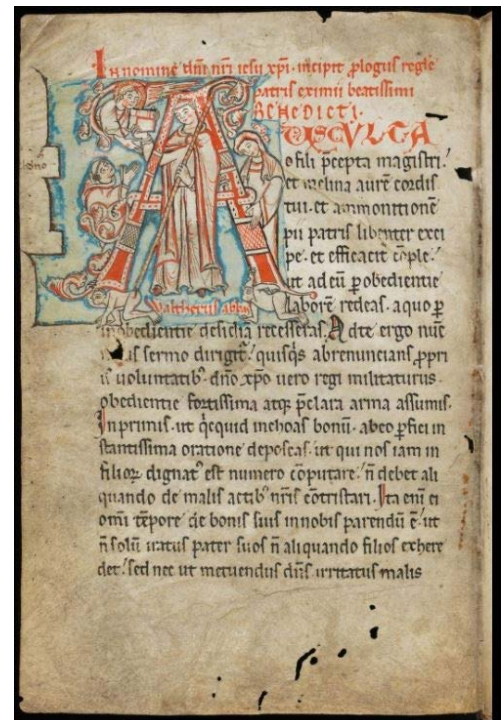 In nomine dni nri iesu xpi. incipit plogus regle
patris eximii beatissimi
BENEDICTI.
AUSCULTA
o fili pcepta magistri.
et inclina aurē cordis
tui. et ammonitionē
pii patris libenter exci
pe. et efficacit cōple.
ut ad eū p obedientie
laborē redeas. a quo p
inobedientie desidiā recesseras. Ad te ergo nūc
sermo dirigit. quisqs abrenuncians ppri
is uoluntatib. dno xpo uero regi militaturus.
obedientie fortissima atq; pclara arma assumis.
Inprimis. ut qcquid inchoas bonū. ab eo pfici in
stantissima oratione deposcas. ut qui nos iam in
filioꝝ dignat est numero cōputare. n̄ debet ali
quando de malis actib nris cōtristari. Ita enī ei
omi tēpore de bonis suis in nobis parendū ē. ut
n̄ solū iratus pater suos n̄ aliquando filios exhere
det. sed nec ut metuendus dns irritatus malis
Waltherus abbas